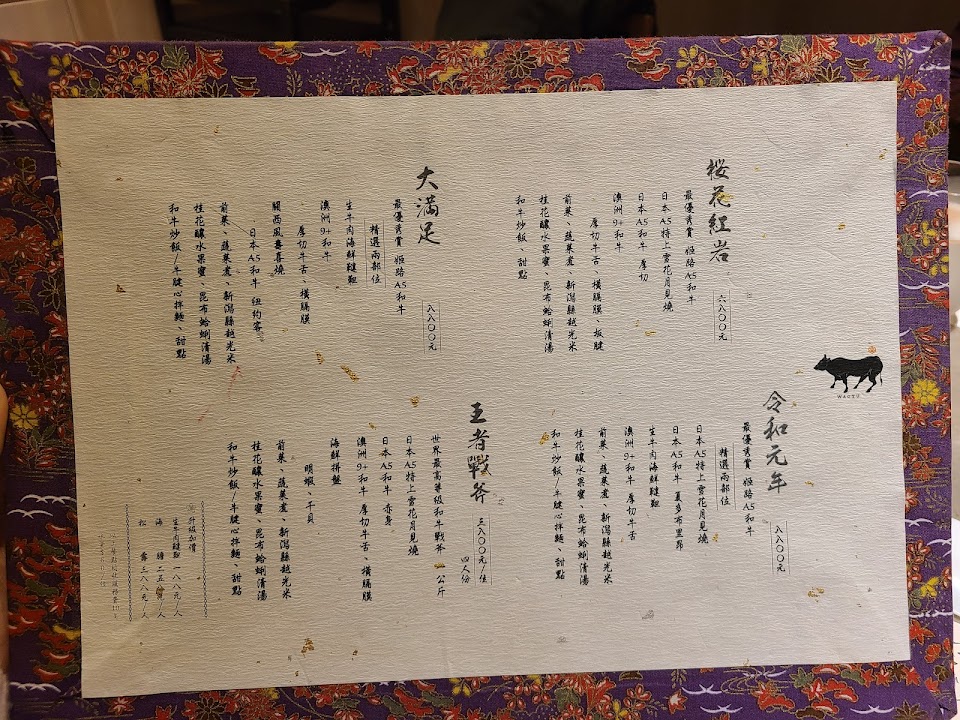 櫻花紅岩
六八〇〇元
最優秀賞 姬路A5和牛
日本A5特上雪花月見燒
日本A5和牛 厚切
澳洲9+和牛
厚切牛舌、橫膈膜、板腱
前菜、蔬菜煮、新潟縣越光米
桂花釀水果蜜、昆布蛤蜊清湯
和牛炒飯、甜點
大滿足
八八〇〇元
最優秀賞 姬路A5和牛
精選兩部位
生牛肉海鮮韃靼
澳洲9+和牛
厚切牛舌、橫膈膜
關西風壽喜燒
日本A5和牛 紐約客
前菜、蔬菜煮、新潟縣越光米
桂花釀水果蜜、昆布蛤蜊清湯
和牛炒飯/牛腱心拌麵、甜點
WAGYU
令和元年
八八〇〇元
最優秀賞 姬路A5和牛
精選兩部位
日本A5特上雪花月見燒
日本A5和牛 夏多布里昂
生牛肉海鮮韃靼
澳洲9+和牛 厚切牛舌
前菜、蔬菜煮、新潟縣越光米
桂花釀水果蜜、昆布蛤蜊清湯
和牛炒飯/牛腱心拌麵、甜點
王者戰斧
三八〇〇元/位
四人份
世界最高等級和牛戰斧 一公斤
日本A5特上雪花月見燒
日本A5和牛 赤身
澳洲9+和牛 厚切牛舌、橫膈膜
海鮮拼盤
明蝦、干貝
前菜、蔬菜煮、新潟縣越光米
桂花釀水果蜜、昆布蛤蜊清湯
和牛炒飯/牛腱心拌麵、甜點
升級加價
生牛肉韃靼 一八八元/人
海 膽 二五 元/人
松 露 三八八元/人